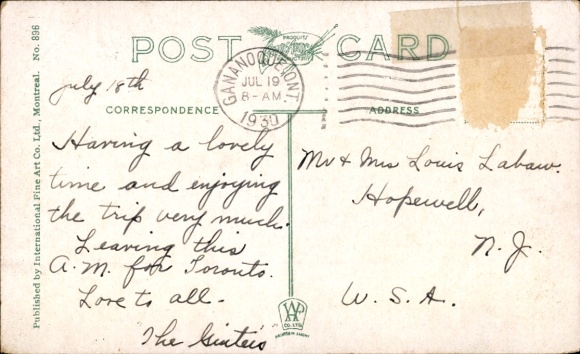 POST CARD
PRODUITS
GANANOQUE, ONT.
JUL 19
8-AM.
1930
CORRESPONDENCE
ADDRESS
July 18th
Having a lovely
time and enjoying
the trip very much.
Leaving this
A.M. for Toronto.
Love to all-
The
Mr & Mrs Louis Labaw.
Hopewell,
N. J.
U. S. A.
CO. LTD.
Published by International Fine Art Co. Ltd., Montreal. No. 896